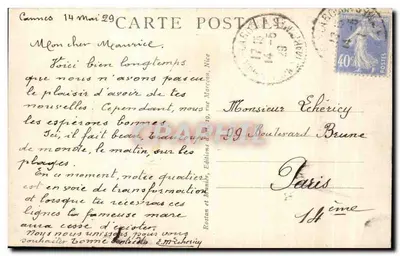 Cannes 14 Mai 29
CARTE POSTALE
Mon cher Maurice,
Voici bien longtemps
que nous n'avons pas eu
le plaisir d'avoir de tes
nouvelles. Cependant, nous
les espérons bonnes.
Ici, il fait beau. Beaucoup
de monde, le matin, sur les
plages.
En ce moment, notre quartier
est en voie de transformation
et lorsque tu recevras ces
lignes la fameuse mare
aura cessé d'exister.
Nous nous unissons pour vous
souhaiter bonne
17 15
14 - 5
29
40c
Monsieur Echéricy
29 Boulevard Brune
Paris
14ème